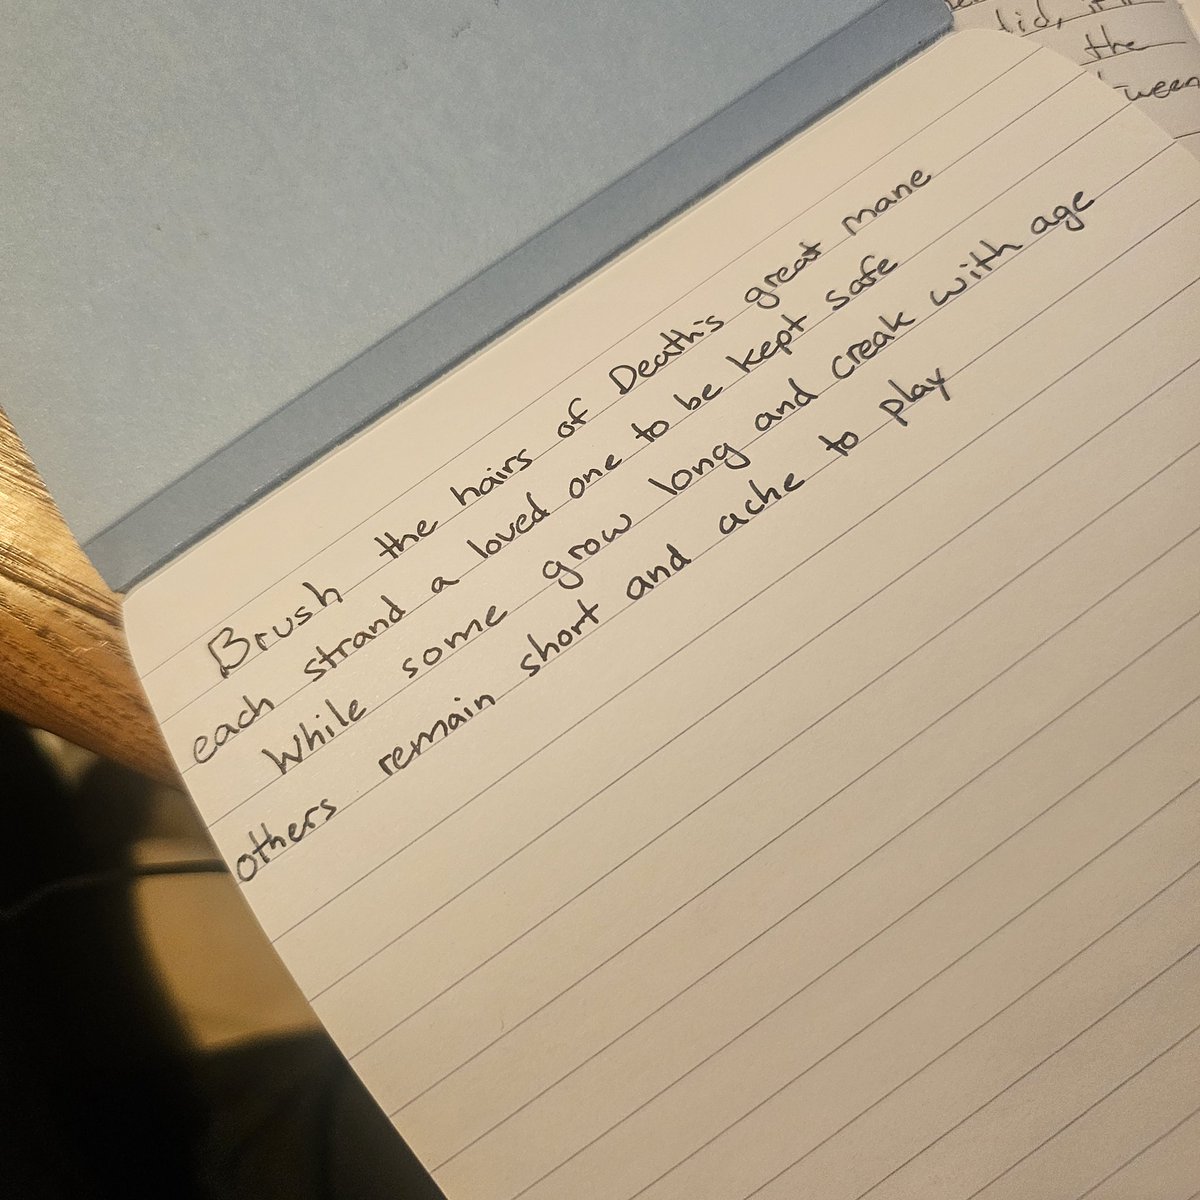 Brush the hairs of Death's great mane
each strand a loved one to be kept safe
While some grow long and creak with age
others remain short and ache to play
the